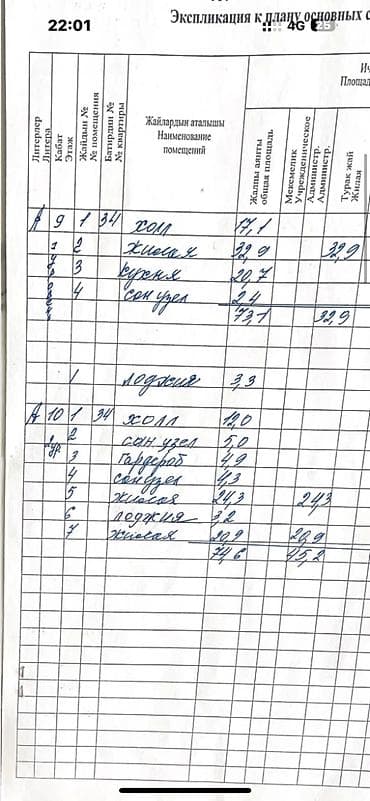 22:01
4G 25
Экспликация к плану основных с
Литерлер Литера
Кабат Этаж
Жайдын № № помещения
Батирдин № № квартиры
Жайлардын аталышы Наименование помещений
Жалпы аянты общая площадь
Мекемелик Учрежденческое Администр. Администр.
Турак жай Жилая
Площад
А 9 1 34 холл 17,1
2 жилая 32,9 32,9
3 кухня 20,7
4 сан узел 2,4
73,1 32,9
1 лоджия 3,3
А 10 1 34 холл 12,0
2 сан узел 5,0
3 гардероб 4,9
4 сан узел 4,3
5 жилая 24,3 24,3
6 лоджия 3,2
7 жилая 20,9 20,9
74,6 45,2